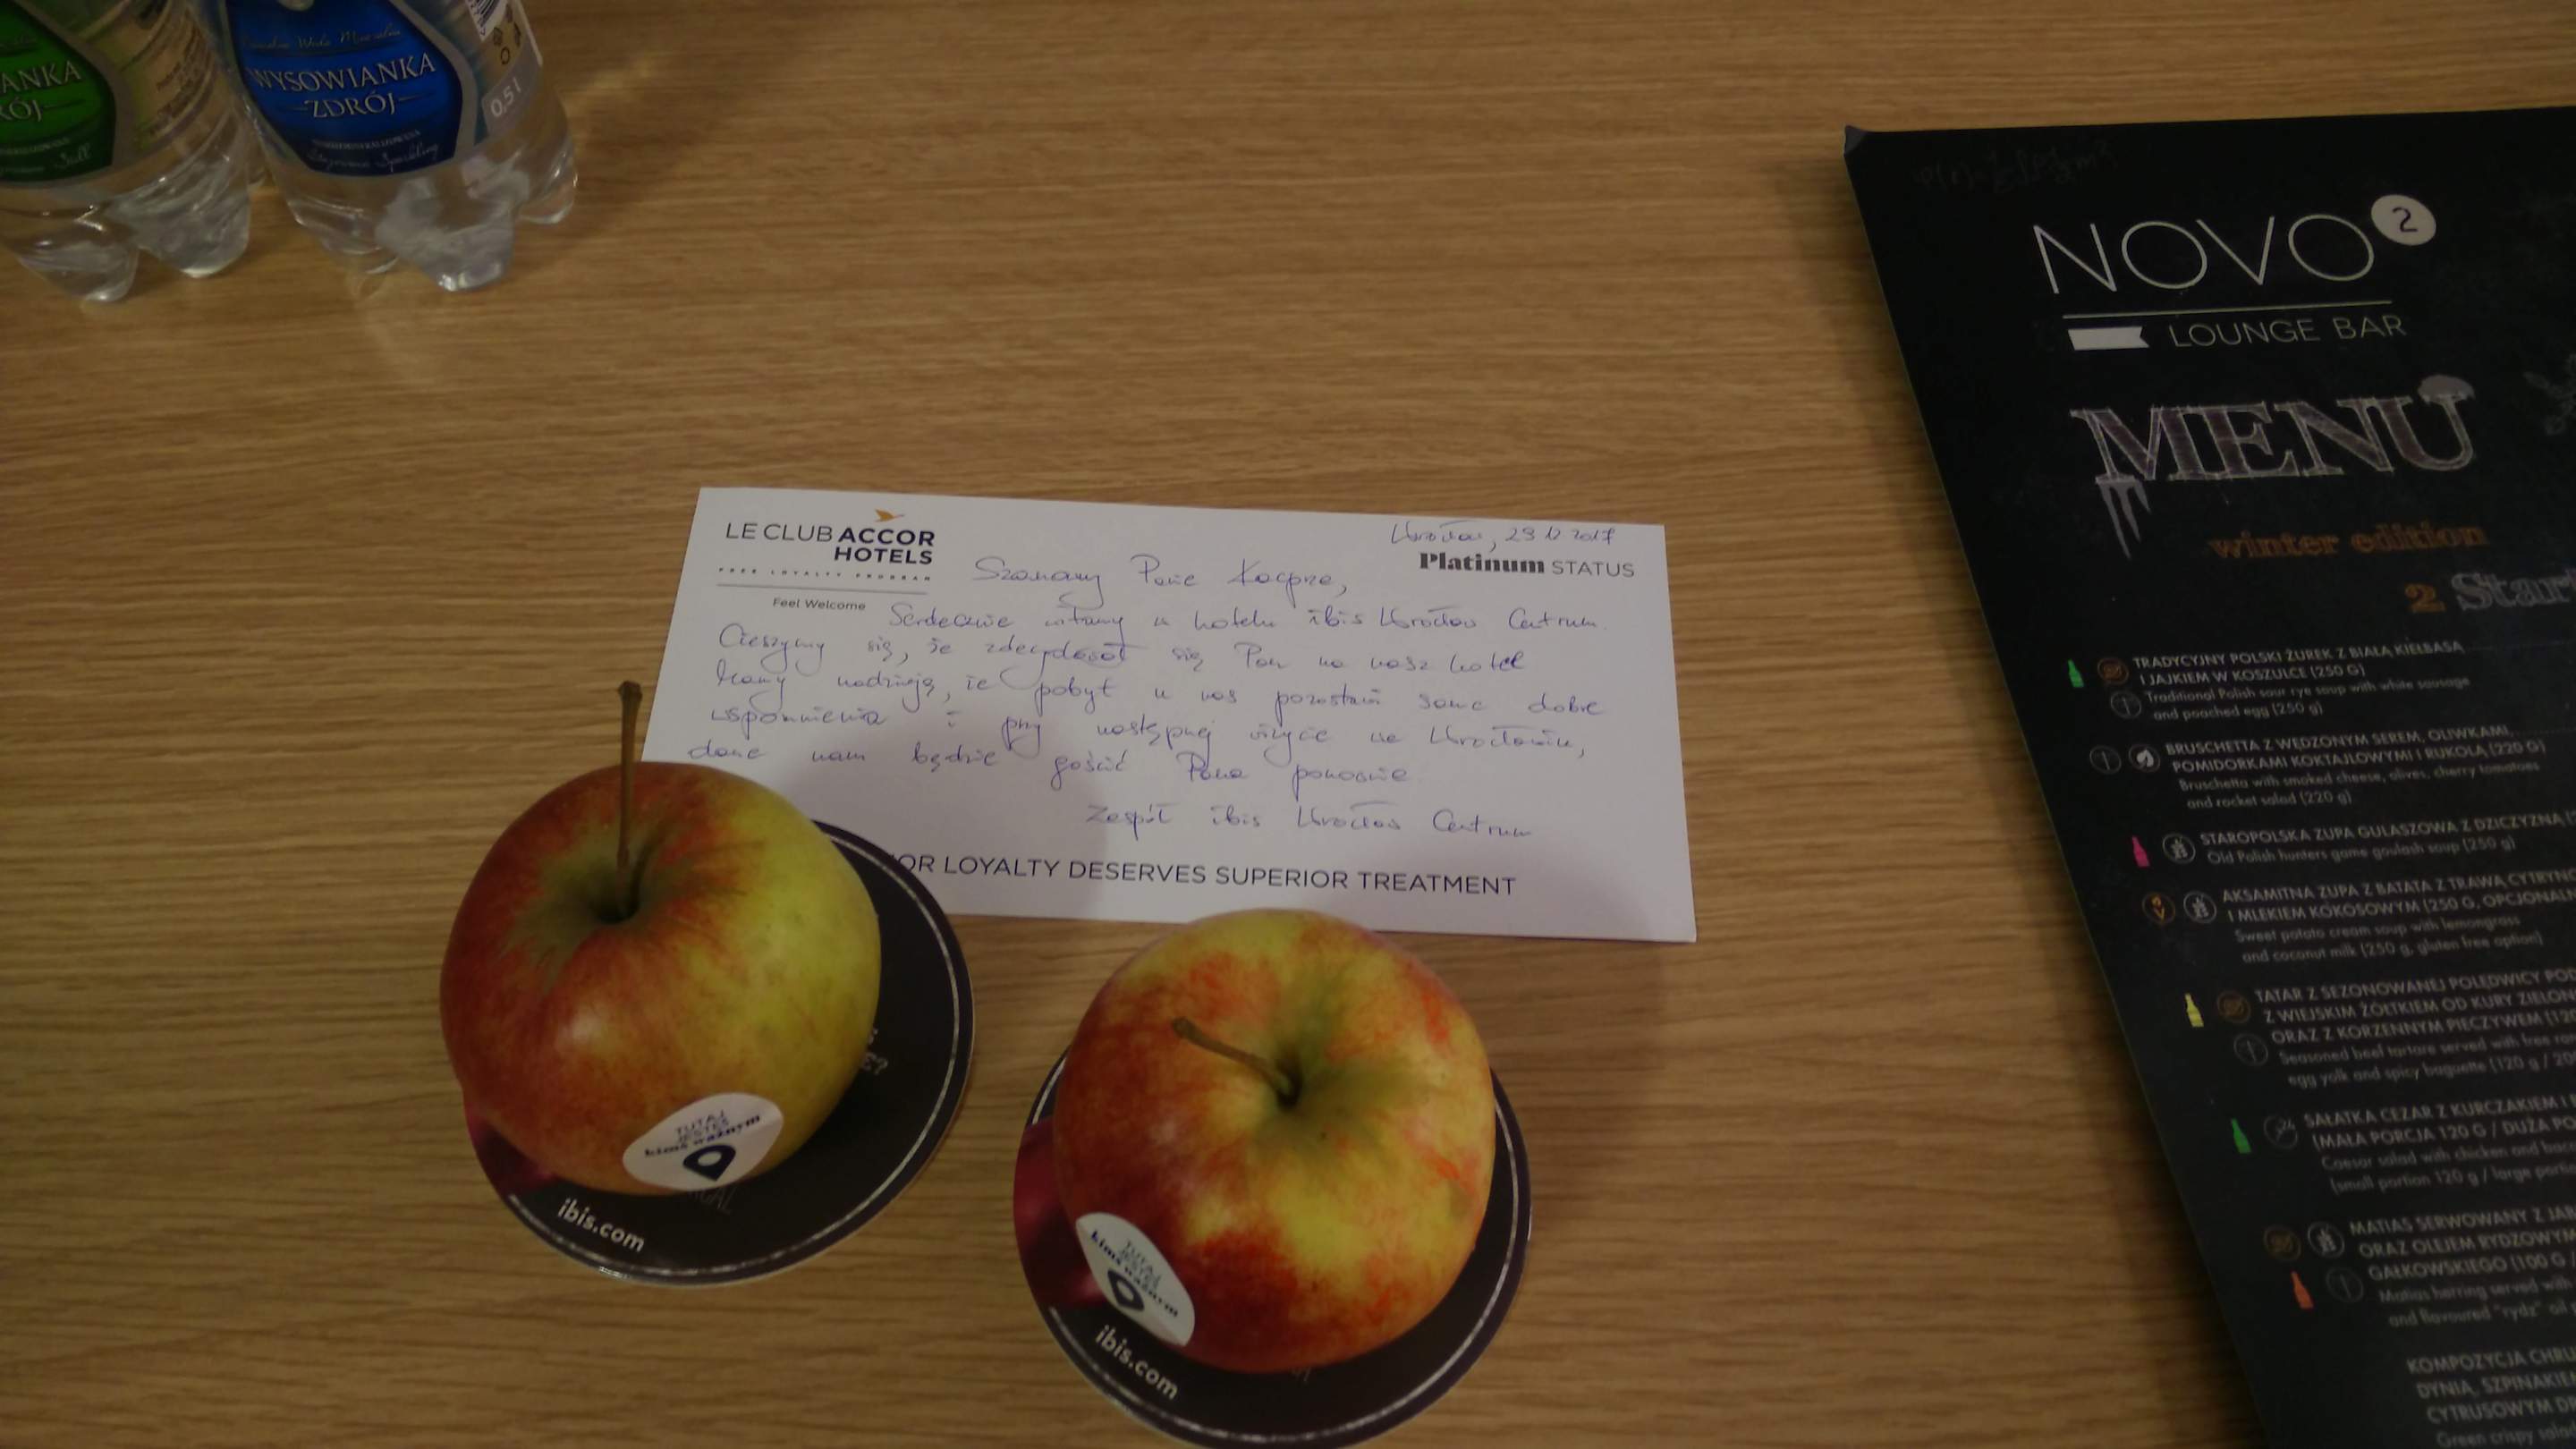 ANKA
RÓJ
Still
WYSOWIANKA
ZDRÓJ
0,5 l
NOVO 2
LOUNGE BAR
MENU
winter edition
2 Star
TRADYCYJNY POLSKI ŻUREK Z BIAŁĄ KIEŁBASĄ
I JAJKIEM W KOSZULCE (250 G)
Traditional Polish sour rye soup with white sausage
and poached egg (250 g)
BRUSCHETTA Z WĘDZONYM SEREM, OLIWKAMI,
POMIDORKAMI KOKTAJLOWYMI I RUKOLĄ (220 G)
Bruschetta with smoked cheese, olives, cherry tomatoes
and rocket salad (220 g)
STAROPOLSKA ZUPA GULASZOWA Z DZICZYZNĄ
Old Polish hunters game goulash soup (250 g)
AKSAMITNA ZUPA Z BATATA Z TRAWĄ CYTRYNO
I MLEKIEM KOKOSOWYM (250 G, OPCJONAL
Sweet potato cream soup with lemongrass
and coconut milk (250 g, gluten free option)
TATAR Z SEZONOWANEJ POLĘDWICY POD
Z WIEJSKIM ŻÓŁTKIEM OD KURY ZIELON
ORAZ Z KORZENNYM PIECZYWEM (12
Seasoned beef tartare served with free ra
egg yolk and spicy baguette (120 g / 2
SAŁATKA CEZAR Z KURCZAKIEM I B
(MAŁA PORCJA 120 G / DUŻA PO
Caesar salad with chicken and bac
(small portion 120 g / large porti
MATIAS SERWOWANY Z JAB
ORAZ OLEJEM RYDZOWYM
GAŁKOWSKIEGO (100 G
Matias herring served wit
and flavoured "rydz" oil
KOMPOZYCJA CHRU
DYNIA, SZPINAKIE
CYTRUSOWYM DR
Green crispy sala
LE CLUB ACCOR
HOTELS
FREE LOYALTY PROGRAM
Feel Welcome
Wrocław, 29 12 2017
Platinum STATUS
Szanowny Panie Kacprze,
Serdecznie witamy w hotelu ibis Wrocław Centrum.
Cieszymy się, że zdecydował się Pan na nasz hotel
Mamy nadzieję, że pobyt u nas pozostawi same dobre
wspomnienia i przy następnej wizycie we Wrocławiu,
dane nam będzie gościć Pana ponownie
Zespół ibis Wrocław Centrum
OR LOYALTY DESERVES SUPERIOR TREATMENT
E?
TUTAJ
JESTEŚ
kimś ważnym
ibis.com
TUTAJ
JESTEŚ
kimś ważnym
ibis.com